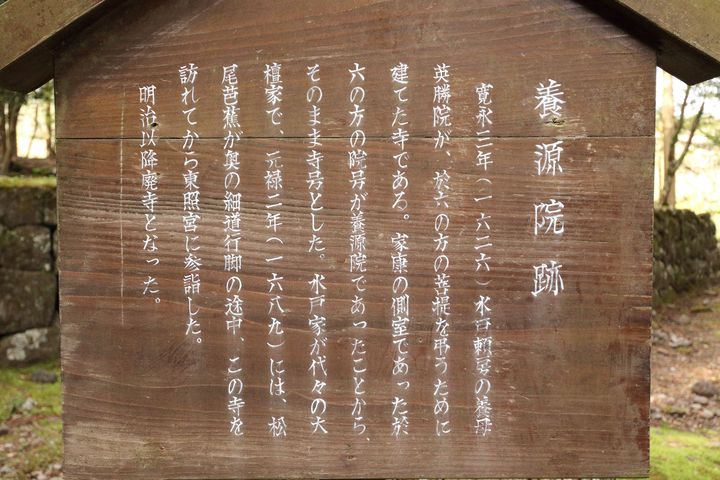 養源院跡
寛永三年（一六二六）水戸頼房の養母
英勝院が、於六の方の菩提を弔うために
建てた寺である。家康の側室であった於
六の方の院号が養源院であったことから、
そのまま寺号とした。水戸家が代々の大
檀家で、元禄二年（一六八九）には、松
尾芭蕉が奥の細道行脚の途中、この寺を
訪れてから東照宮に参詣した。
明治以降廃寺となった。